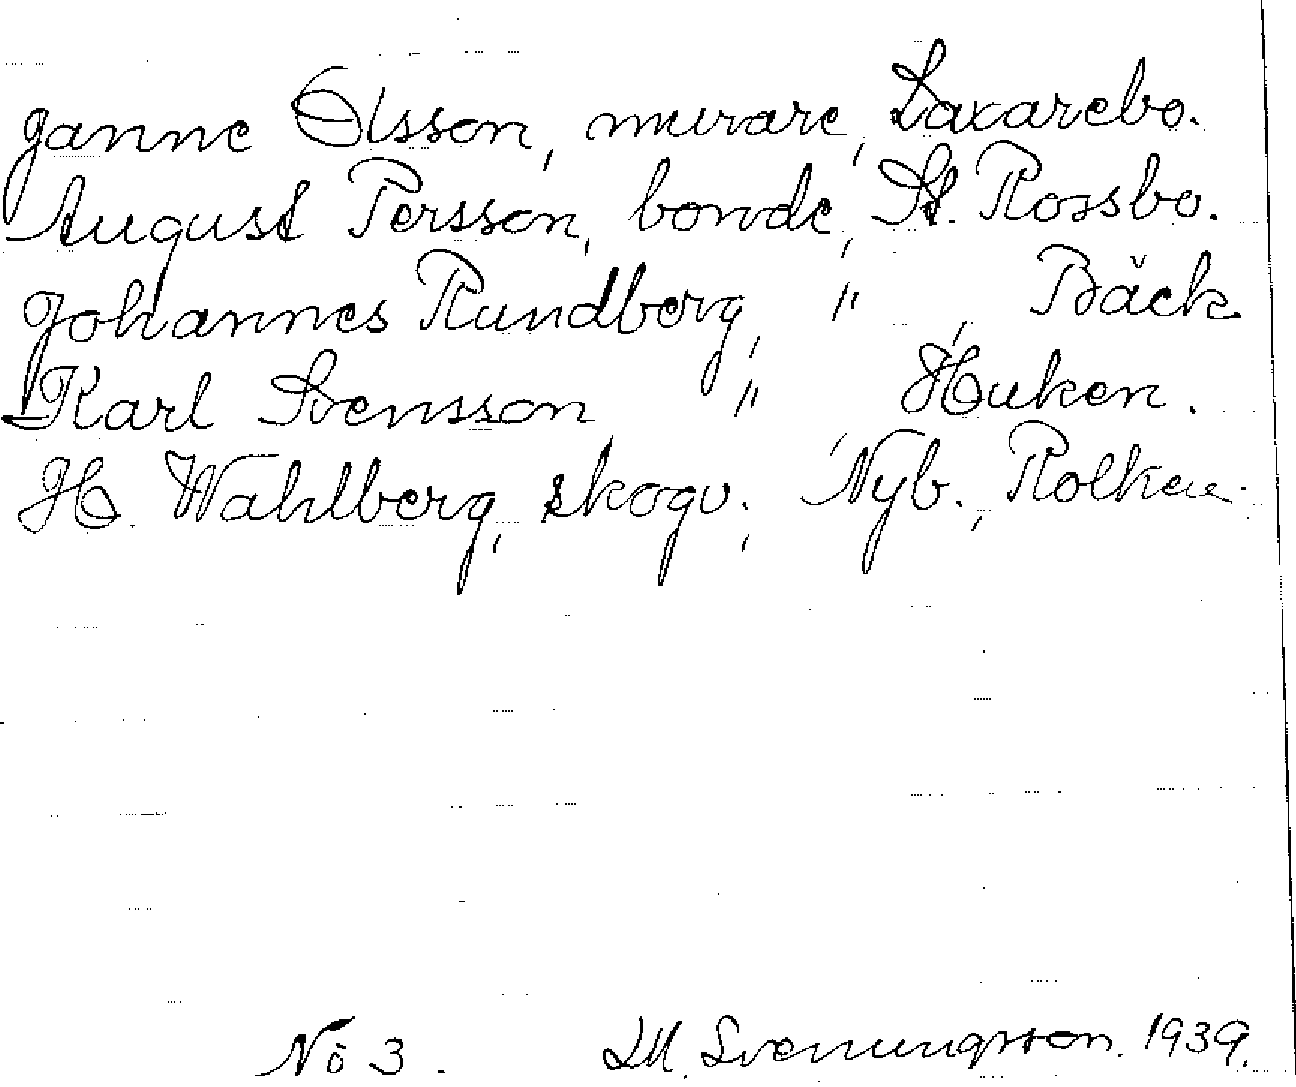 Janne Olsson, murare, Laxarebo.
August Persson, bonde, St. Rossbo.
Johannes Rundberg, " , Bäck
Karl Svensson " Huken.
H. Wahlberg, skogv., Nyb., Rolken.
No 3. M. Svenungsson. 1939.